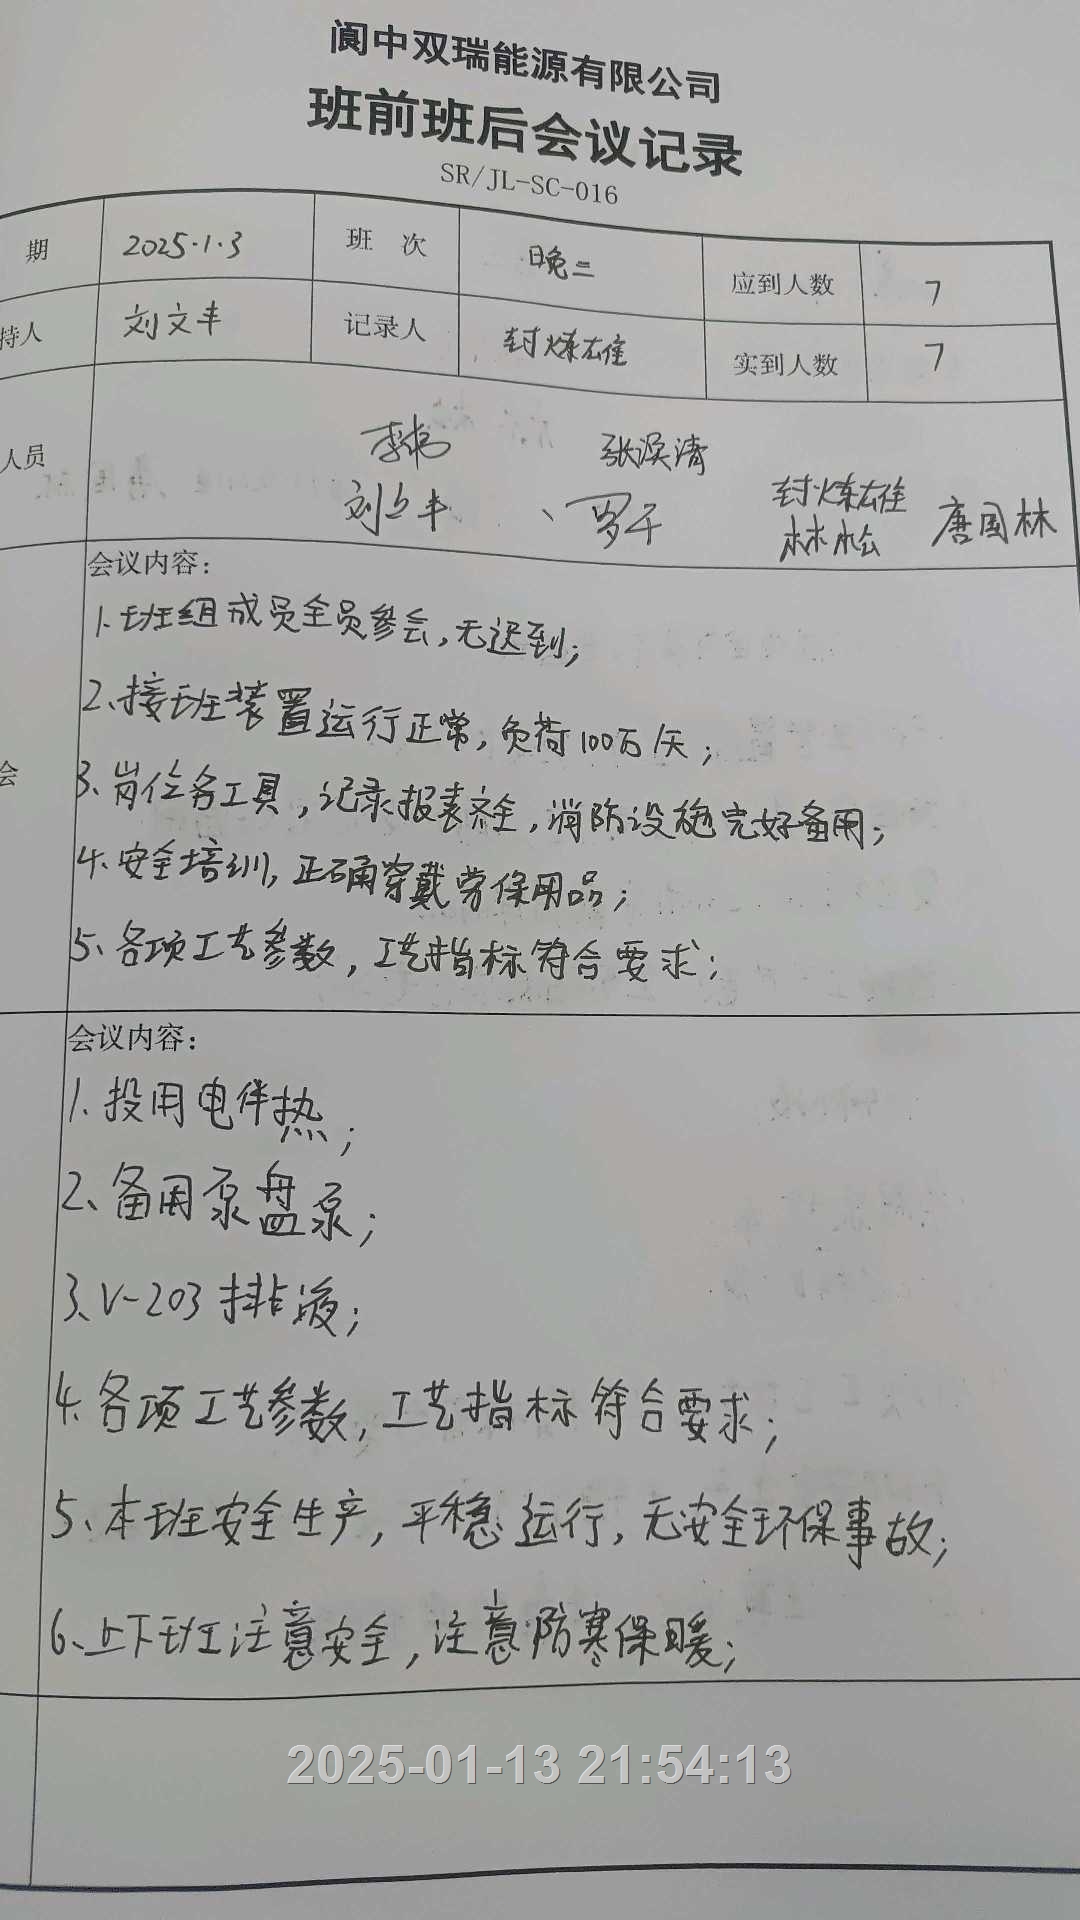 阆中双瑞能源有限公司
班前班后会议记录
SR/JL-SC-016
期 2025·1·3 班 次 晚二 应到人数 7
持人 刘文丰 记录人 封炼雄 实到人数 7
人员
李伟 张涣清
刘文丰 、罗千 封炼雄 唐国林
林松
会议内容:
1.班组成员全员参会,无迟到;
2、接班装置运行正常,负荷100万/天;
会
3、岗位各工具,记录报表齐全,消防设施完好备用;
4.安全培训,正确穿戴劳保用品;
5、各项工艺参数,工艺指标符合要求;
会议内容:
1.投用电伴热;
2、备用泵盘泵;
3、V-203排液;
4.各项工艺参数,工艺指标符合要求;
5、本班安全生产,平稳运行,无安全环保事故;
6、上下班注意安全,注意防寒保暖;
2025-01-13 21:54:13